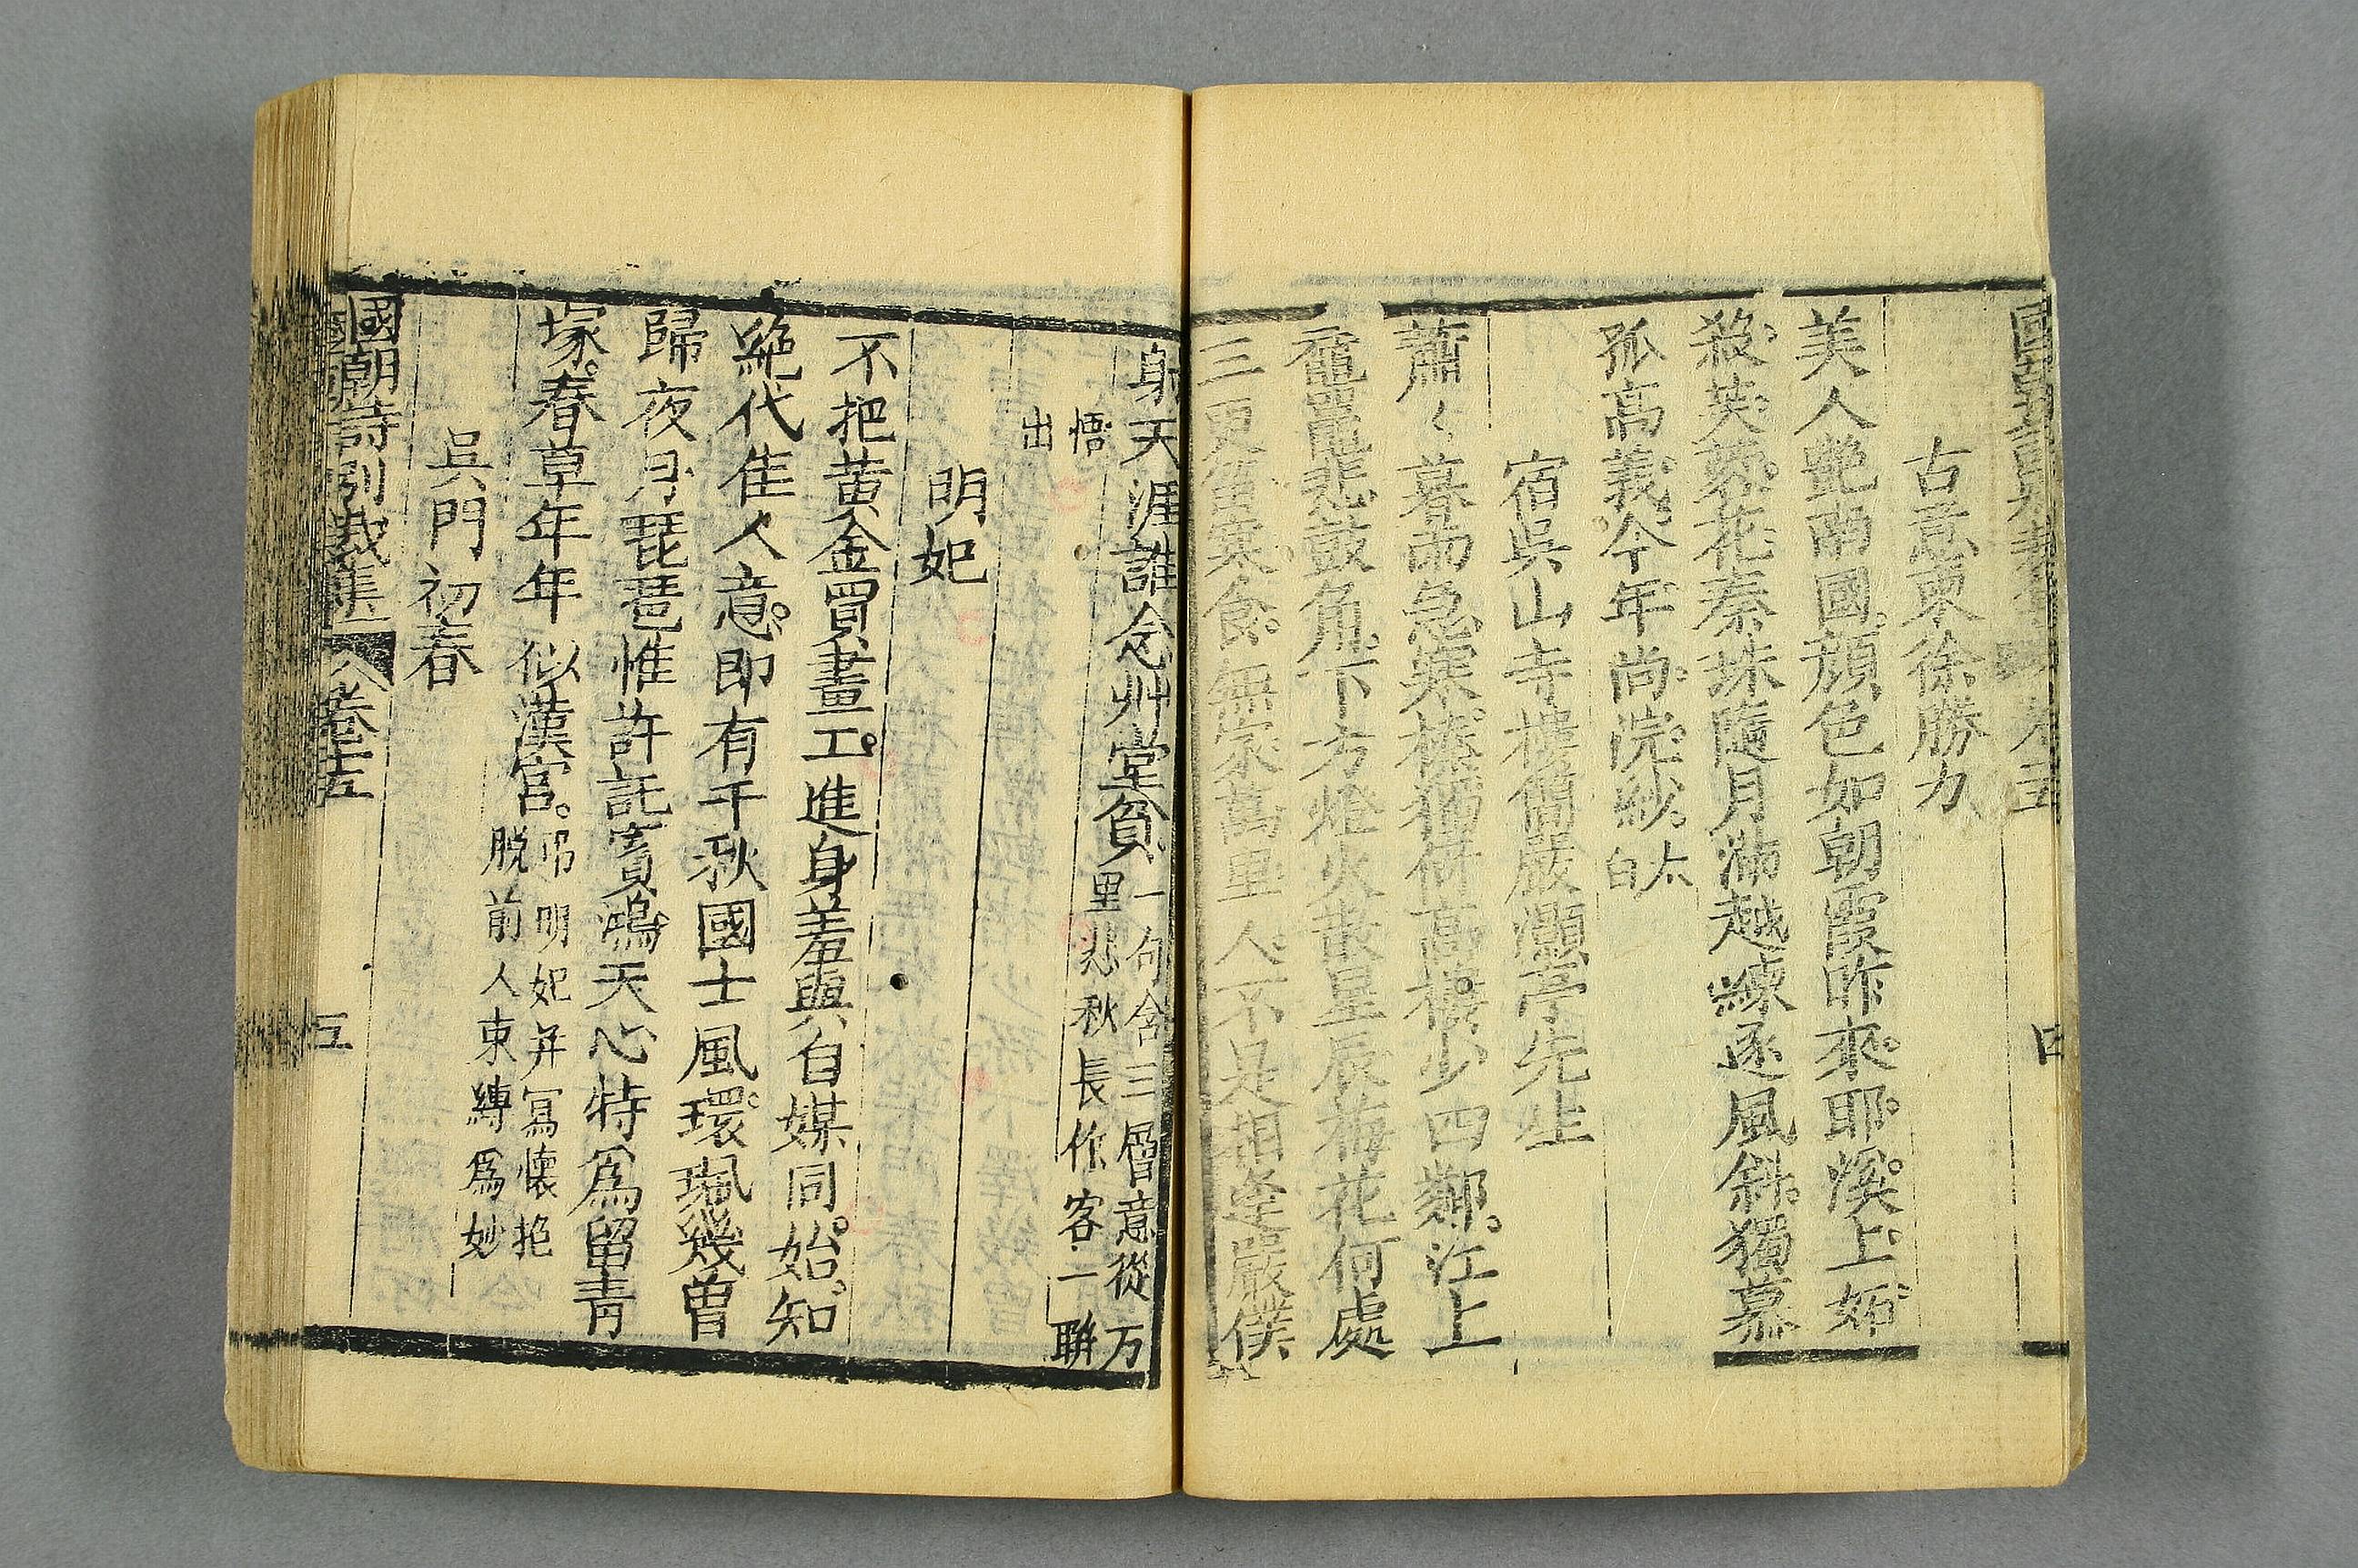 古意柬徐勝力
美人艶南國顔色如朝霞昨來耶溪上
殺芙蓉花秦珠隨月滿越練逐風斜獨慕
孤高義今年尚浣紗太
白
宿吳山寺樓簡嚴灝亭先生
蕭〻暮雨急寒榛獨倚高樓少四鄰江上
黿鼉悲鼓角下方燈火散星辰梅花何處
三更笛寒食無家萬里人不是相逢嚴僕
四
射天涯誰念艸堂貧一句含三層意從万
里悲秋長作客一聯
悟
出
明妃
不把黃金買畫工進身羞與自媒同始知
絶代佳人意即有千秋國士風環珮幾曽
歸夜月琵琶惟許託賓鴻天心特爲留青
塚春草年年似漢宮弔明妃并寫懷抱
脱前人束縛爲妙
吳門初春
國朝詩別裁集 卷十五 五